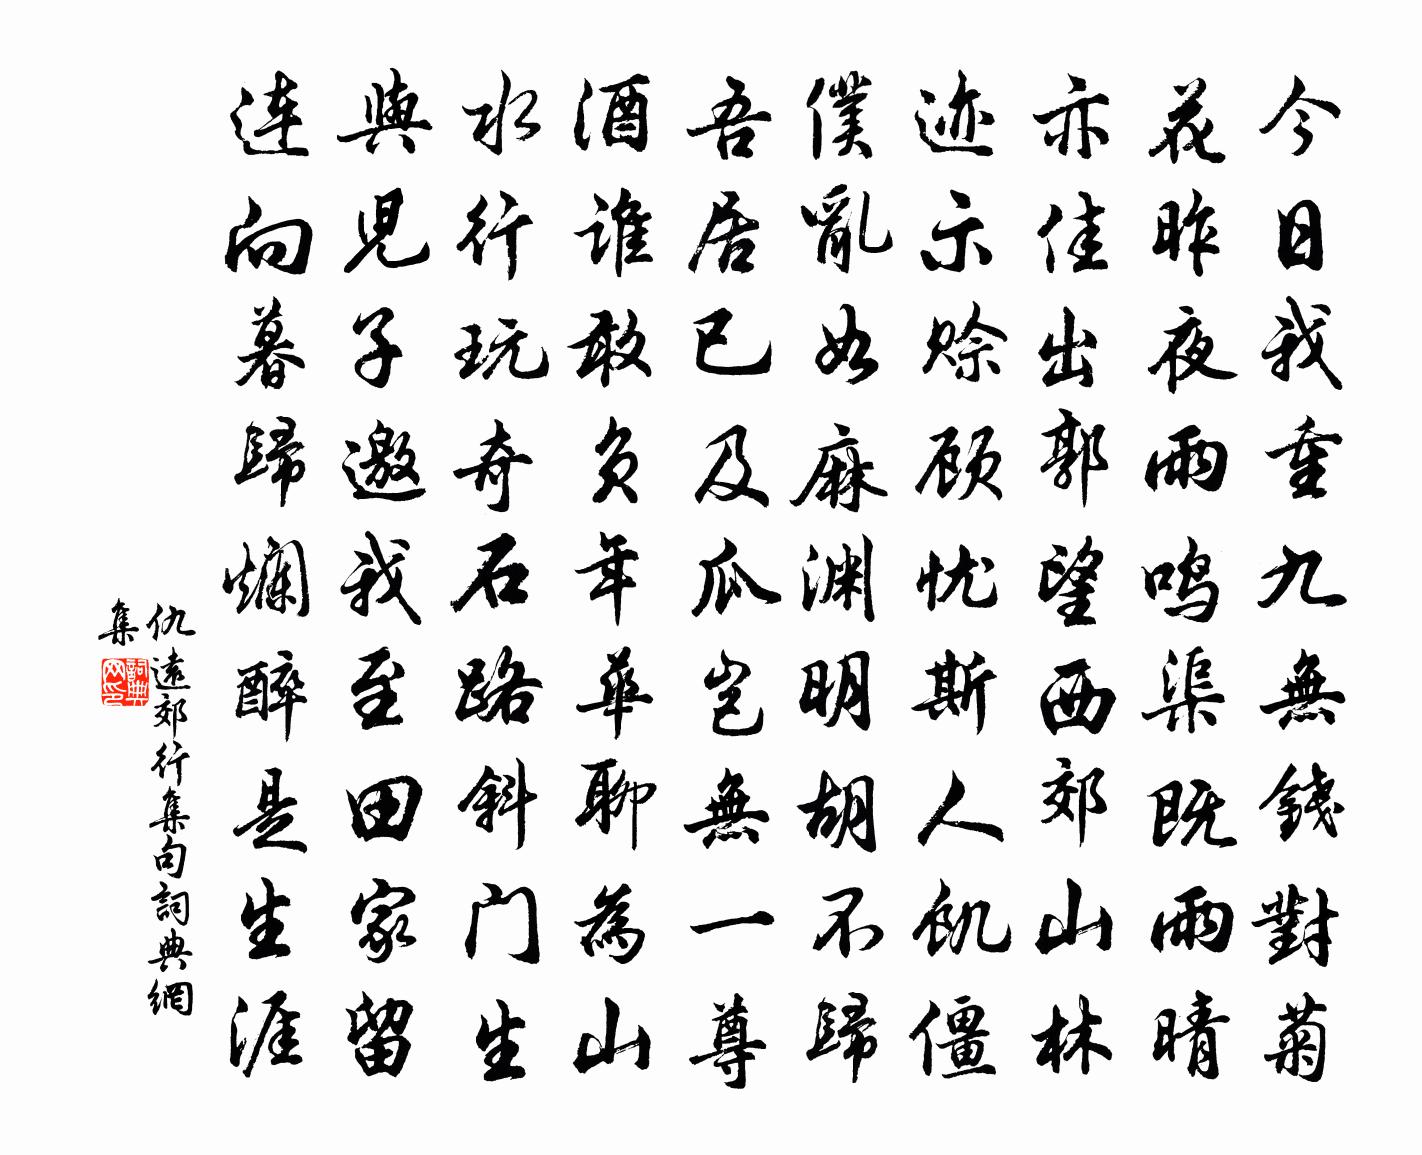 今日我重九無錢對菊
花昨夜雨鸣渠既雨晴
亦佳出郭望西郊山林
迹示赊顾忧斯人饥僵
僕亂如麻渊明胡不歸
吾居已及瓜岂無一尊
酒谁敢负年華聊為山
水行玩奇石路斜门生
與兒子邀我至田家留
连向暮歸爛醉是生涯
仇遠郊行集句詞典網
集
詞典
网印